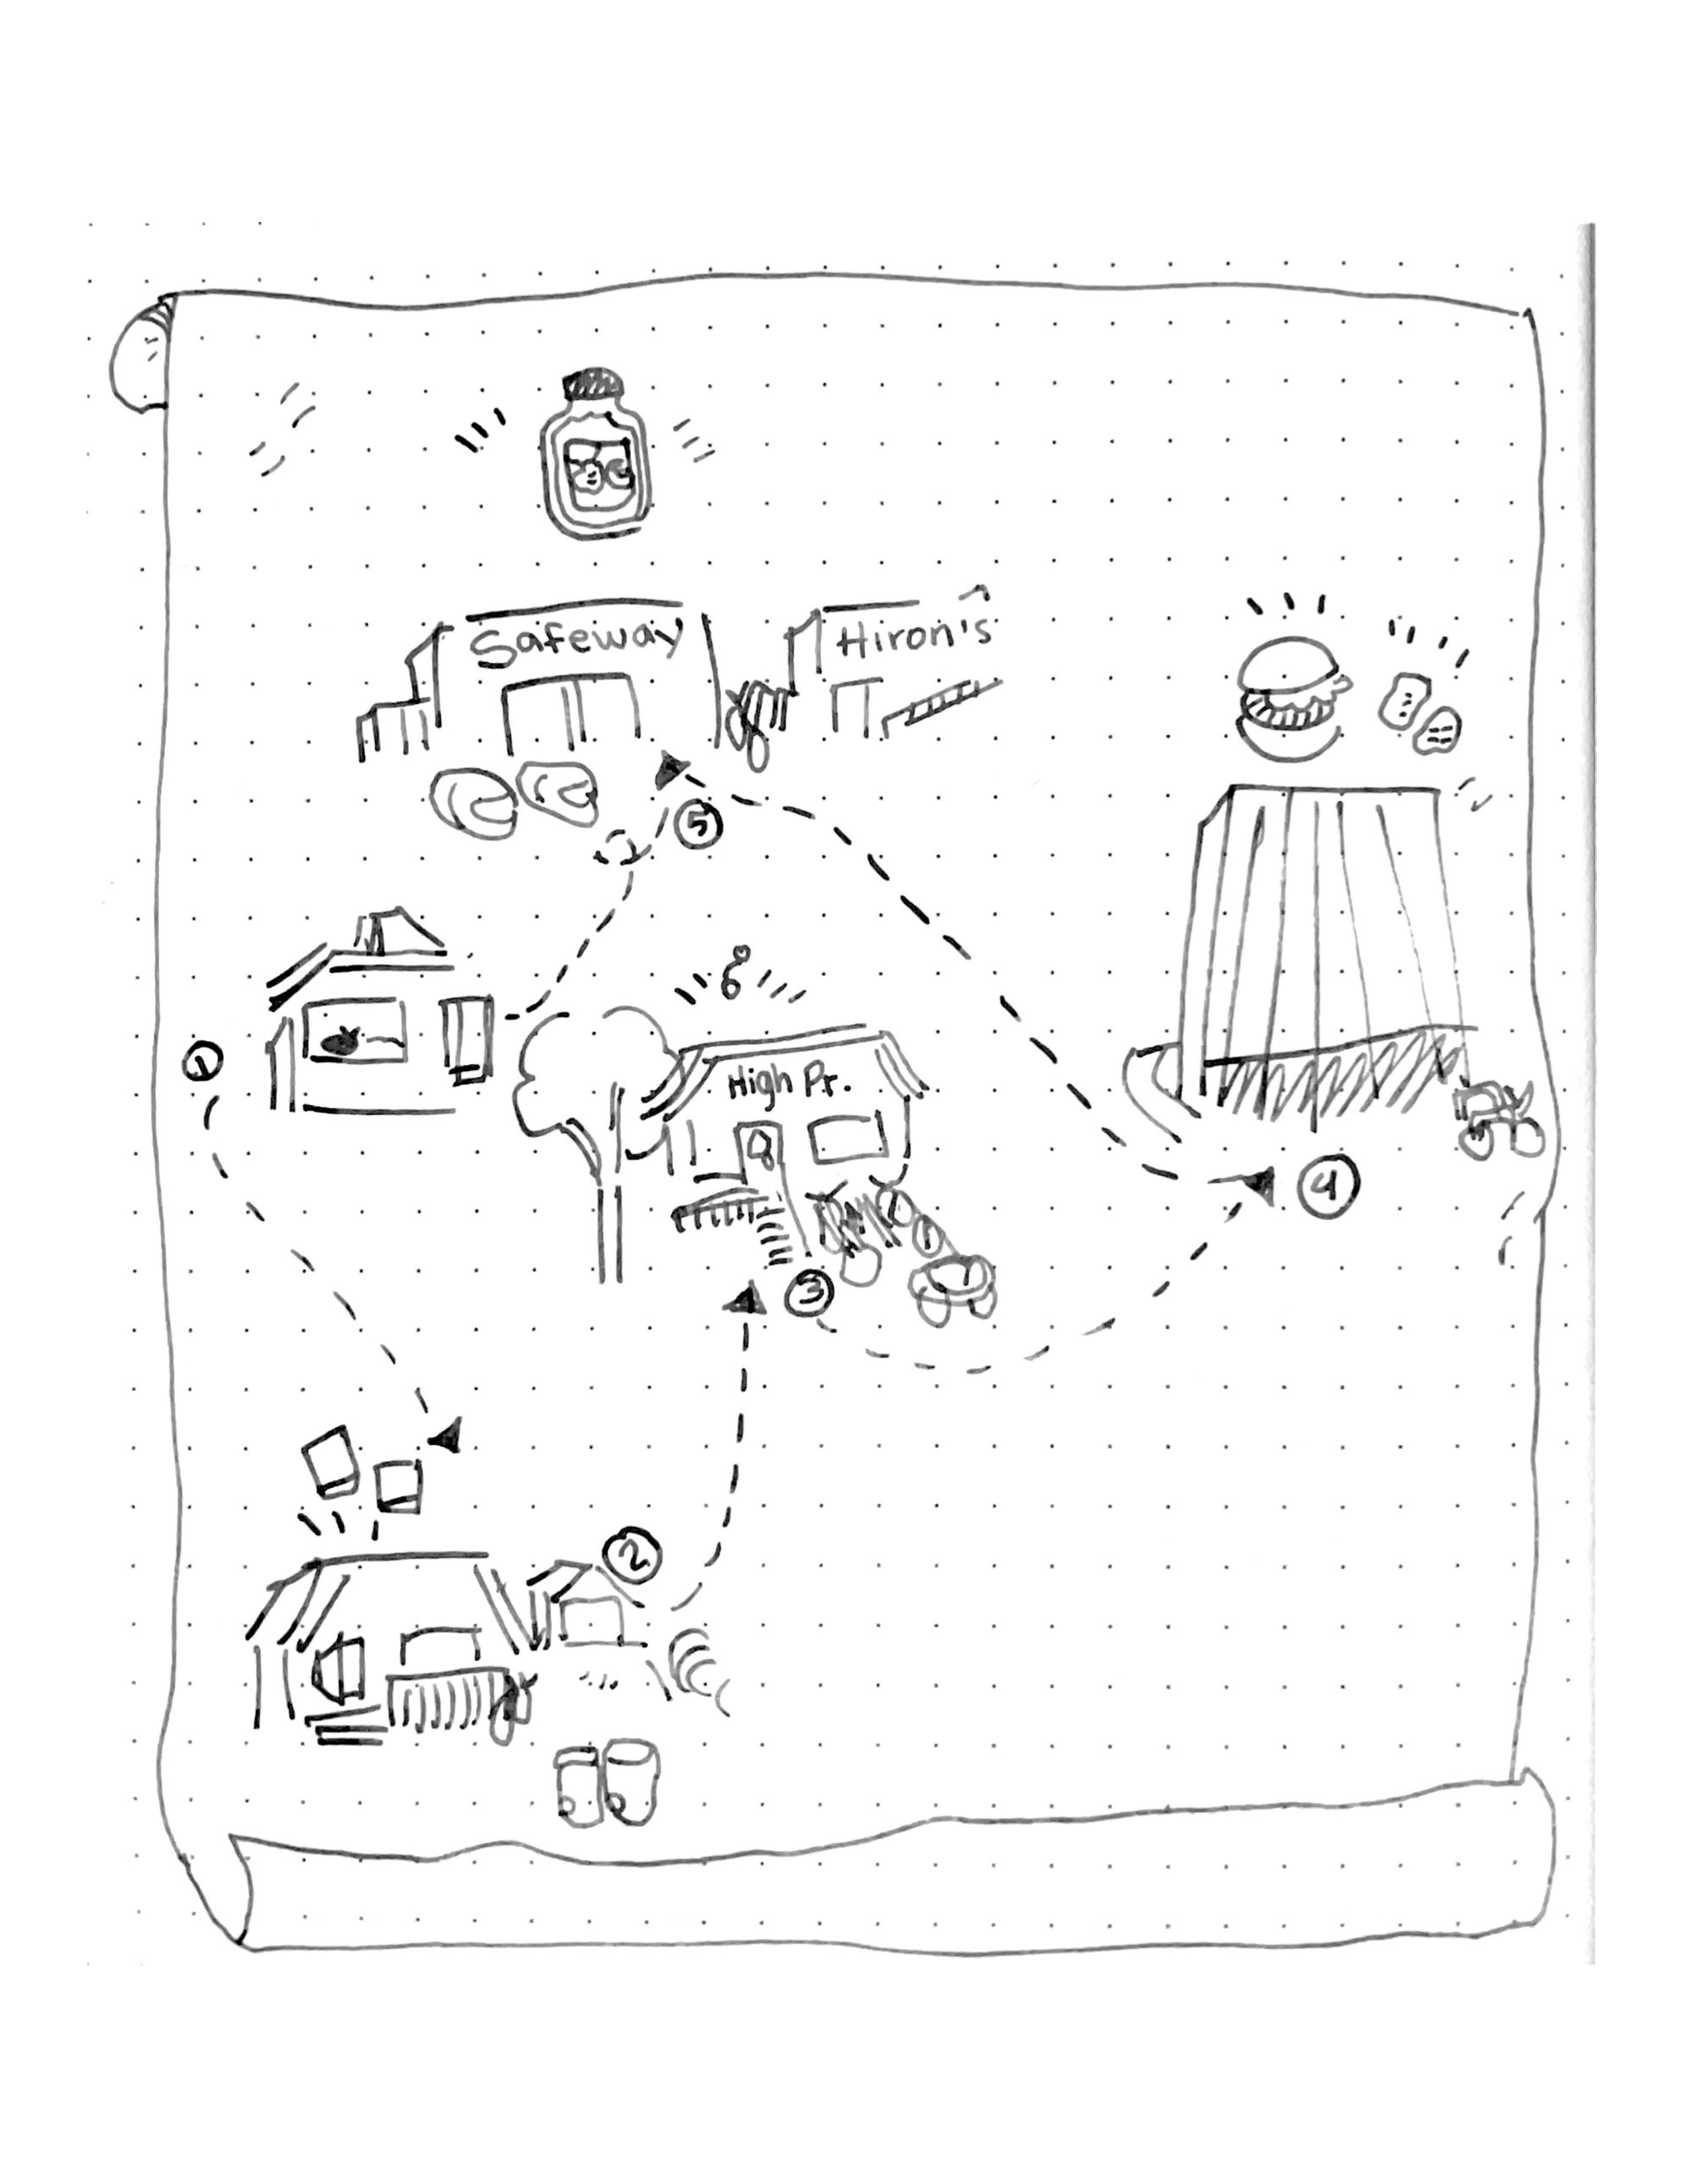 Safeway
Hiron's
5
1
High Pr.
4
3
2